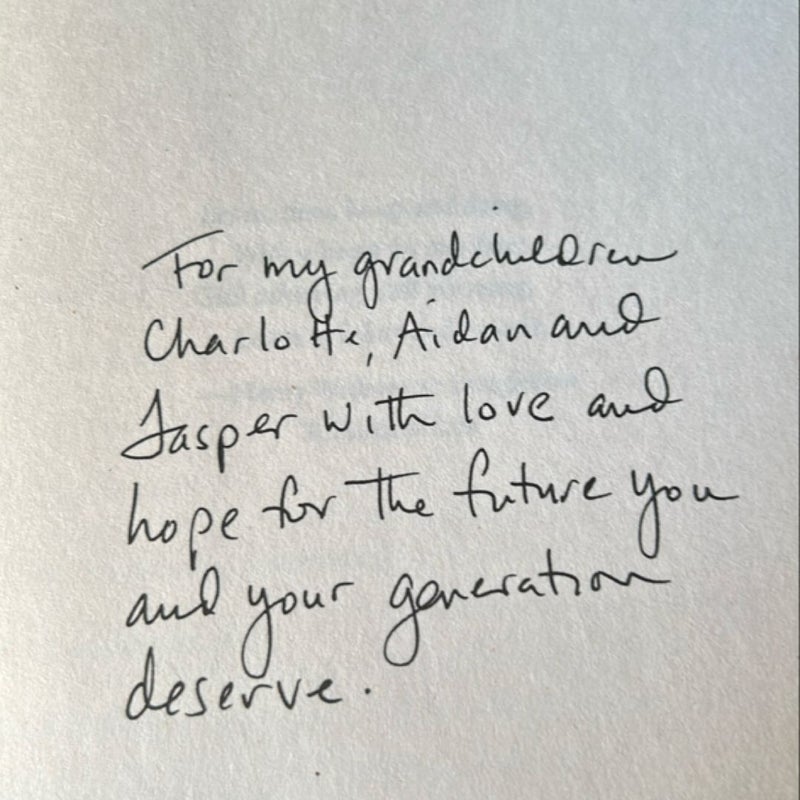 For my grandchildren
Charlotte, Aidan and
Jasper with love and
hope for the future you
and your generation
deserve.